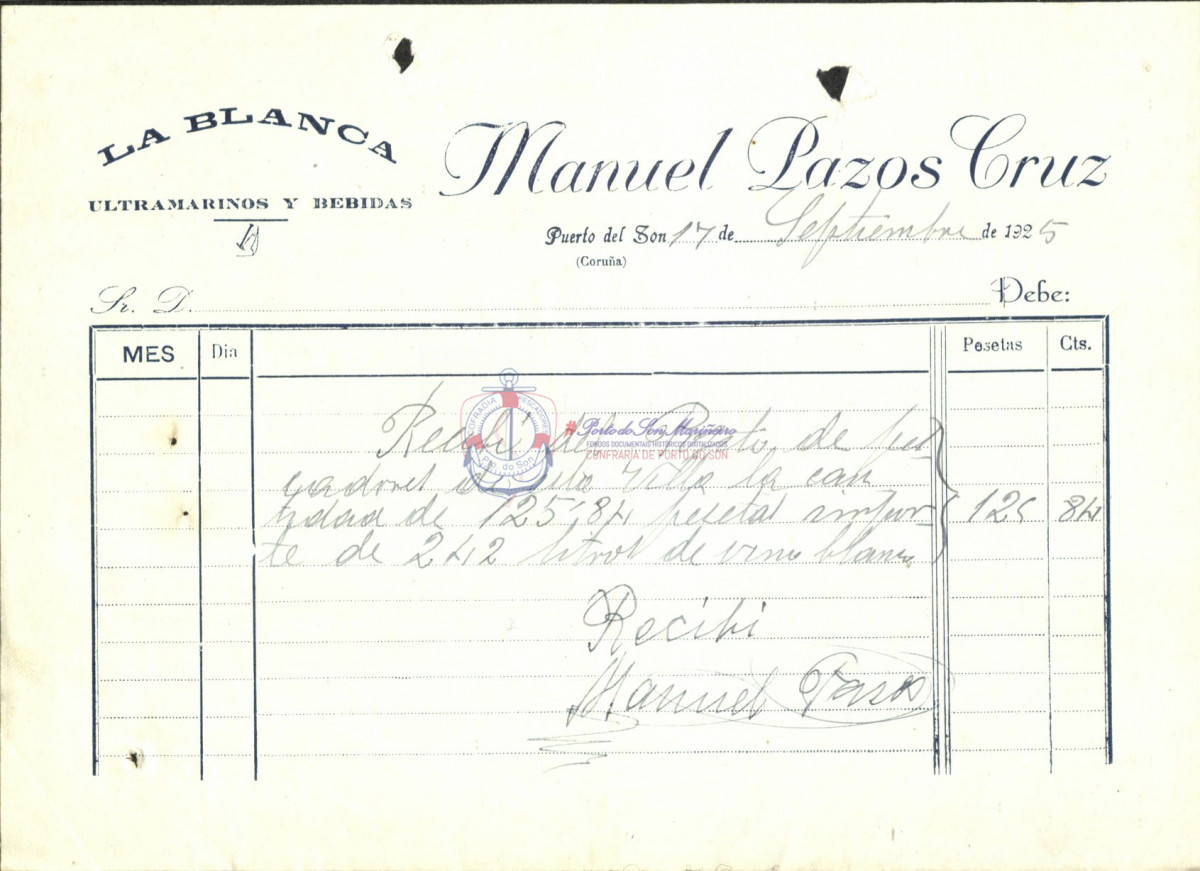 LA BLANCA
ULTRAMARINOS Y BEBIDAS
Manuel Pazos Cruz
Puerto del Son 17 de Septiembre de 1925
(Coruña)
Sr. D. Debe:
MES Dia Pesetas Cts.
Recibi del de pes
cadores de esta Villa la can
tidad de 125'84 pesetas impor- 125 84
te de 242 litros de vino blanco
COFRADIA PESCADORES
Pto. do Son
#Porto do Son Mariñeiro
FONDOS DOCUMENTAIS HISTÓRICOS DIGITALIZADOS
CONFRARÍA DE PORTO DO SON
Recibi
Manuel Pasos